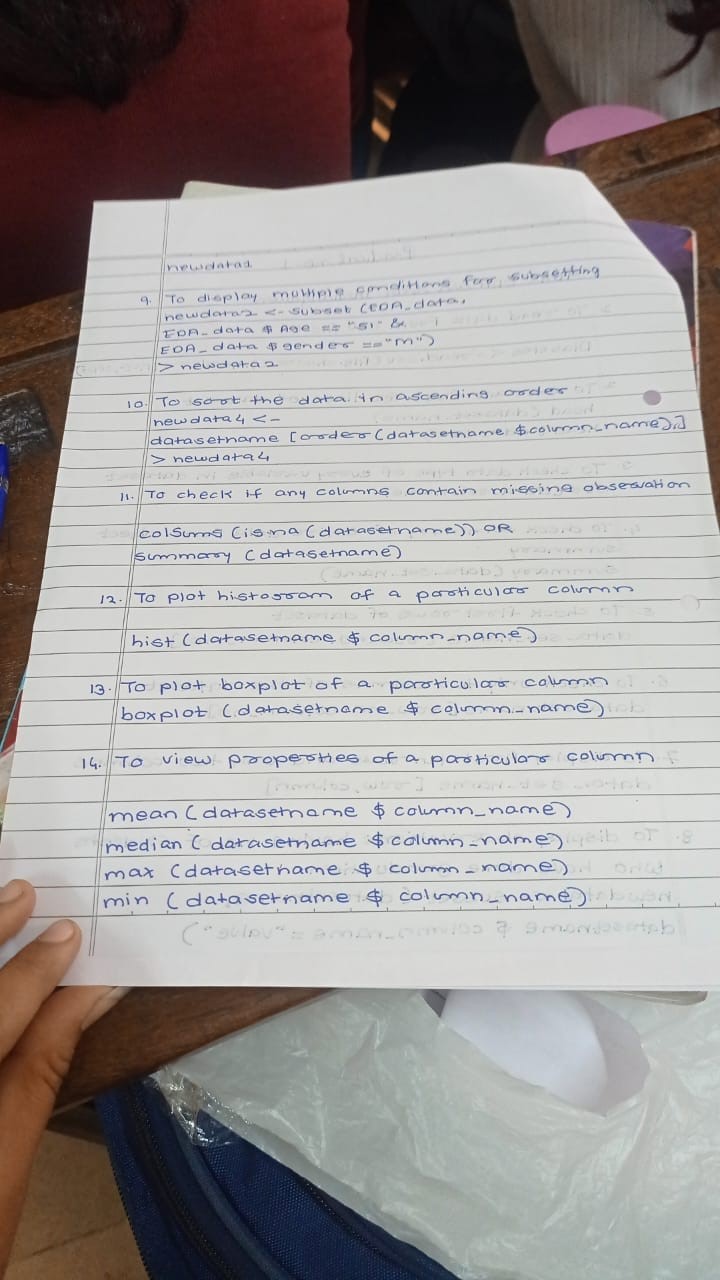 newdata1
9. To display multiple conditions for subsetting
newdata2 <- subset (EDA_data,
EDA_data $ Age == "51" &
EDA_data $ gender == "M")
> newdata2
10. To sort the data in ascending order
newdata4 <-
datasetname [order (datasetname $ column_name),]
> newdata4
11. To check if any columns contain missing observation
colSums (is.na (datasetname)) OR
summary (datasetname)
12. To plot histogram of a particular column
hist (datasetname $ column_name)
13. To plot boxplot of a particular column
boxplot (datasetname $ column_name)
14. To view properties of a particular column
mean (datasetname $ column_name)
median (datasetname $ column_name)
max (datasetname $ column_name)
min (datasetname $ column_name)